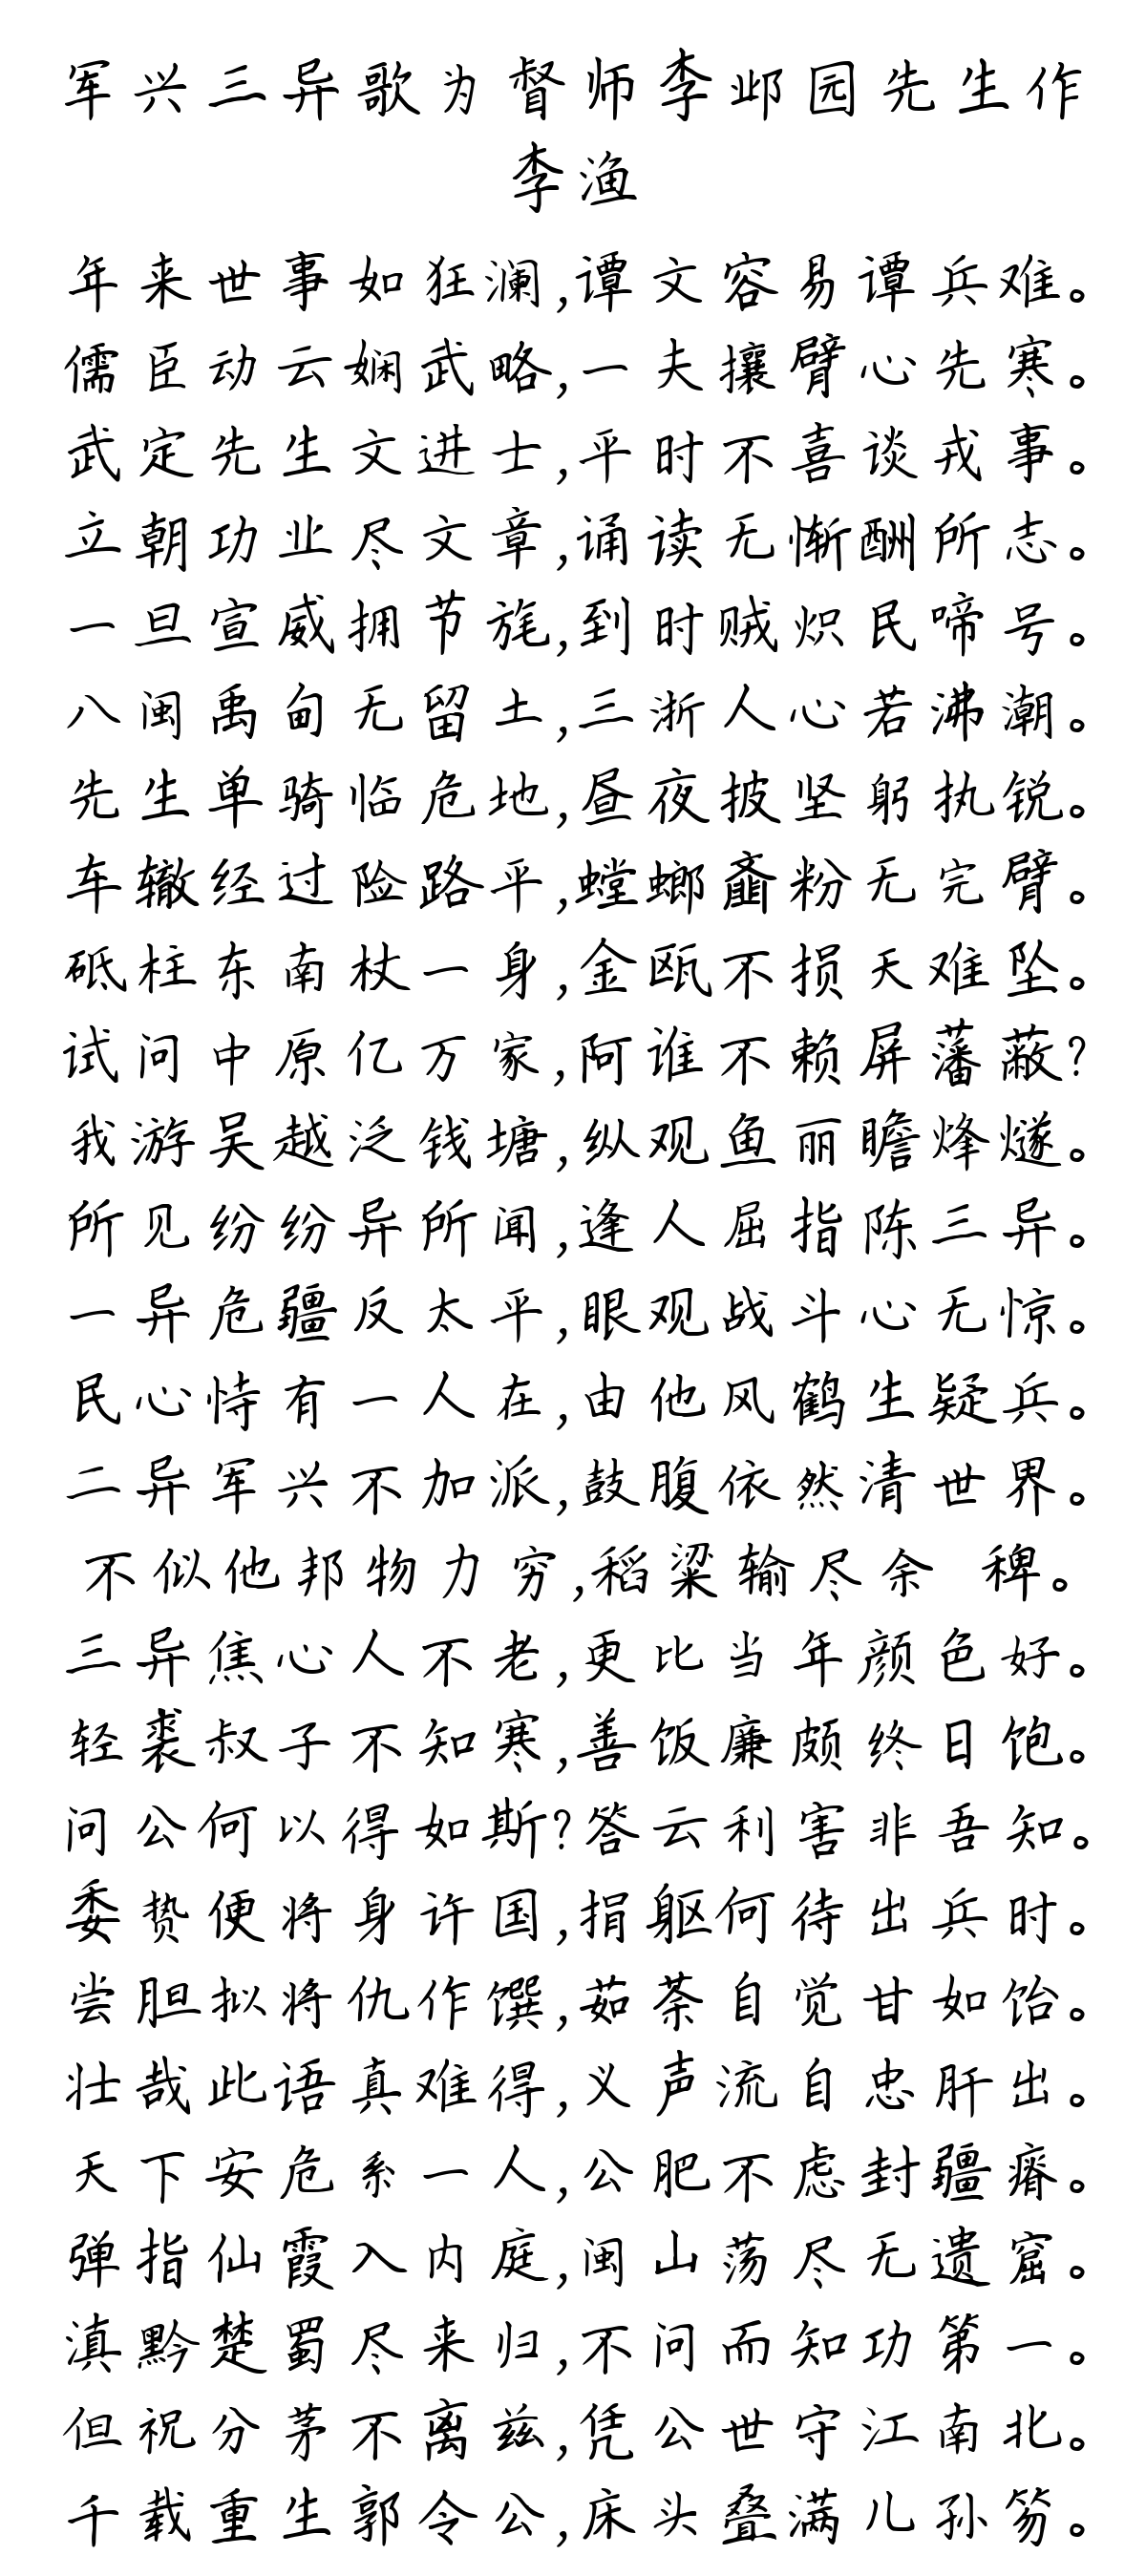 军兴三异歌为督师李邺园先生作
李渔
年来世事如狂澜,谭文容易谭兵难。
儒臣动云娴武略,一夫攘臂心先寒。
武定先生文进士,平时不喜谈戎事。
立朝功业尽文章,诵读无惭酬所志。
一旦宣威拥节旄,到时贼炽民啼号。
八闽禹甸无留土,三浙人心若沸潮。
先生单骑临危地,昼夜披坚躬执锐。
车辙经过险路平,螳螂齑粉无完臂。
砥柱东南杖一身,金瓯不损天难坠。
试问中原亿万家,阿谁不赖屏藩蔽?
我游吴越泛钱塘,纵观鱼丽瞻烽燧。
所见纷纷异所闻,逢人屈指陈三异。
一异危疆反太平,眼观战斗心无惊。
民心恃有一人在,由他风鹤生疑兵。
二异军兴不加派,鼓腹依然清世界。
不似他邦物力穷,稻粱输尽余 稗。
三异焦心人不老,更比当年颜色好。
轻裘叔子不知寒,善饭廉颇终日饱。
问公何以得如斯?答云利害非吾知。
委贽便将身许国,捐躯何待出兵时。
尝胆拟将仇作馔,茹荼自觉甘如饴。
壮哉此语真难得,义声流自忠肝出。
天下安危系一人,公肥不虑封疆瘠。
弹指仙霞入内庭,闽山荡尽无遗窟。
滇黔楚蜀尽来归,不问而知功第一。
但祝分茅不离兹,凭公世守江南北。
千载重生郭令公,床头叠满儿孙笏。